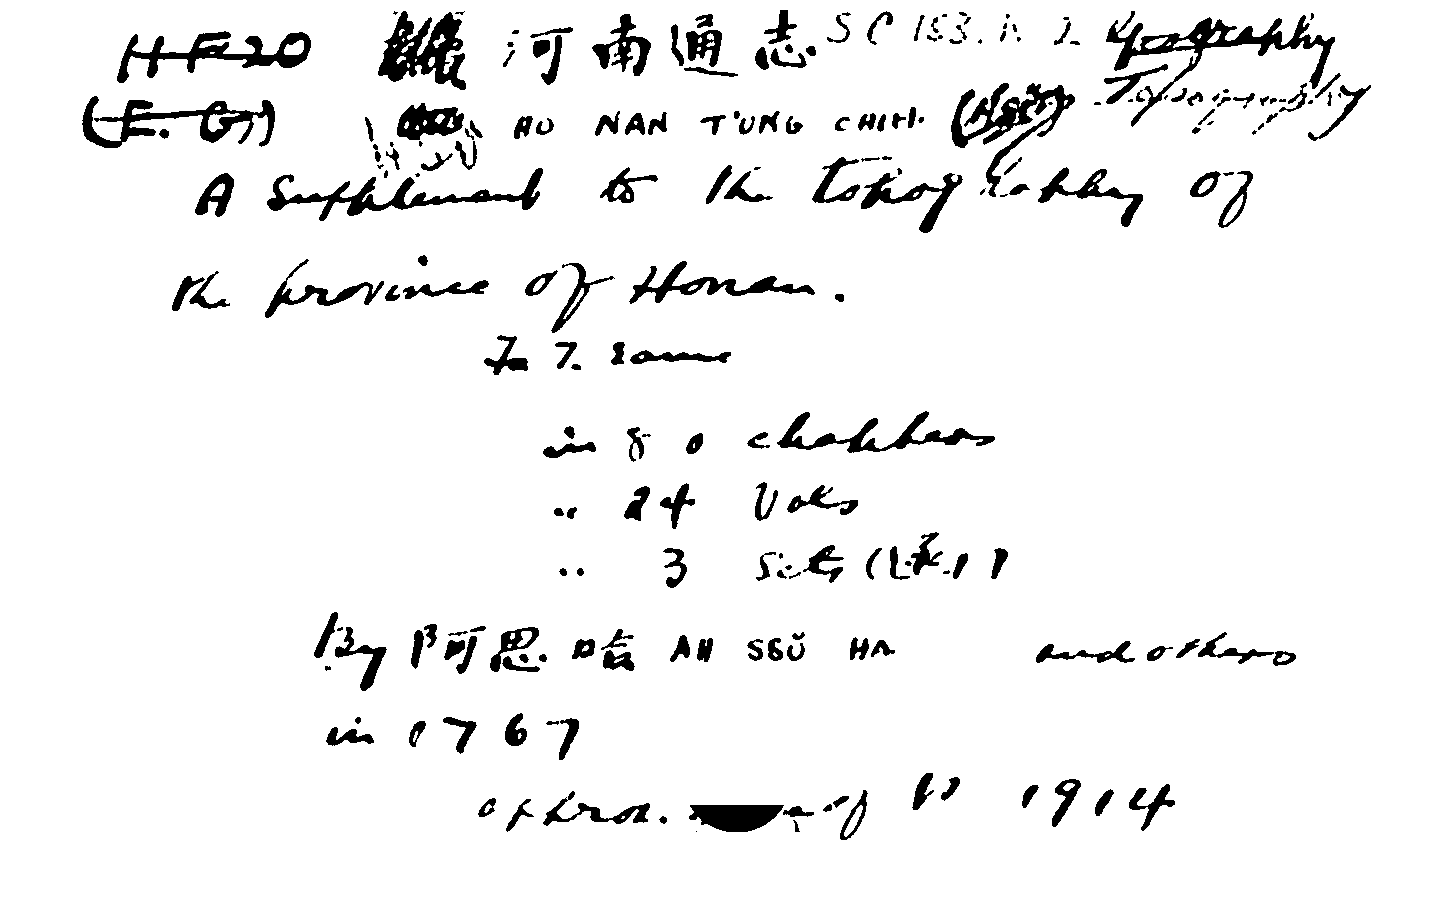 H F 20 河南通志 SC 183. h 2 Geography
(E. G.) HO NAN T'UNG CHIH Topography
A Supplement to the topography of
the province of Honan.
In T. same
in 8 0 chapters
" 24 Vols
" 3 Sets (套)
By 阿思哈 AH SSŬ HA and others
in 1767
approx. of 1914